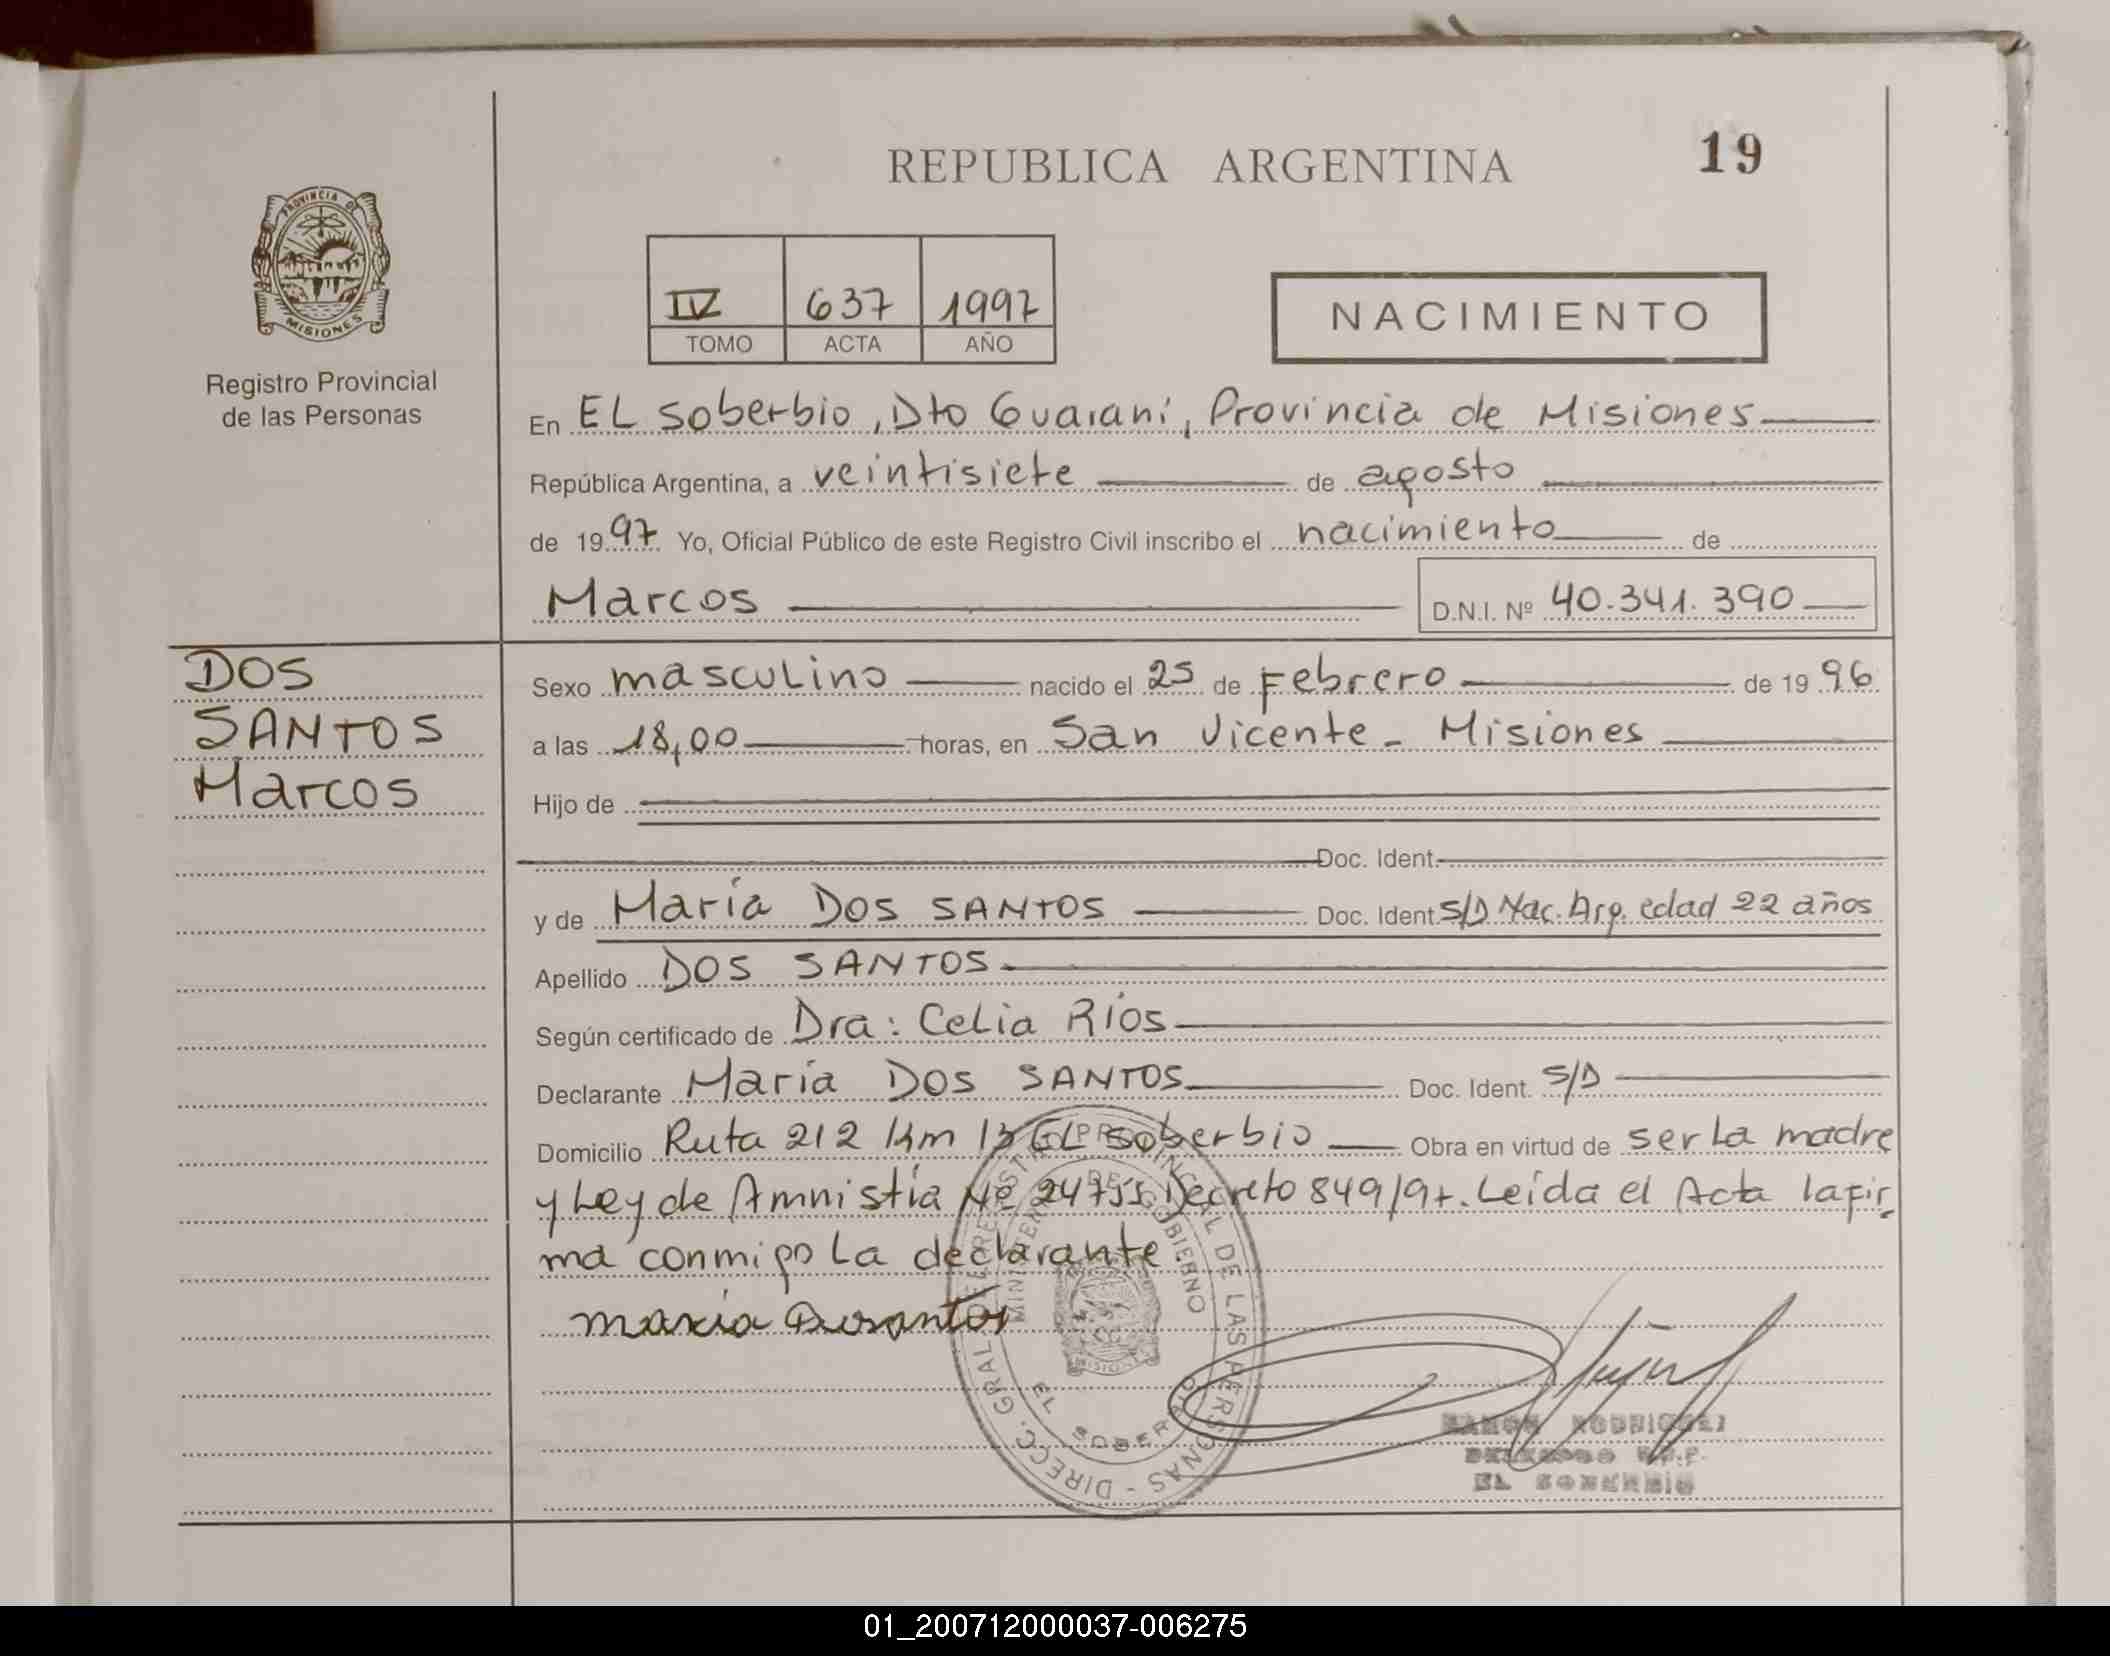 REPUBLICA ARGENTINA
19
PROVINCIA DE
MISIONES
Registro Provincial
de las Personas
IV 637 1997
TOMO ACTA AÑO
NACIMIENTO
En EL Soberbio, Dto Guaraní, Provincia de Misiones
República Argentina, a veintisiete de agosto
de 1997 Yo, Oficial Público de este Registro Civil inscribo el nacimiento de
Marcos D.N.I. Nº 40.341.390
DOS
SANTOS
Marcos
Sexo masculino nacido el 25 de Febrero de 1996
a las 18,00 horas, en San Vicente - Misiones
Hijo de
Doc. Ident.
y de María DOS SANTOS Doc. Ident. S/D Nac. Arg. edad 22 años
Apellido DOS SANTOS
Según certificado de Dra: Celia Ríos
Declarante María DOS SANTOS Doc. Ident. S/D
Domicilio Ruta 212 Km 13 EL Soberbio Obra en virtud de ser La madre
y Ley de Amnistía Nº 24755 Decreto 849/97. Leída el Acta la fir
ma conmigo La declarante
maria
DIRECC. GRAL. DEL REGISTRO PROVINCIAL DE LAS PERSONAS -
MINISTERIO DE GOBIERNO
MISIONES
EL SOBERBIO
RAMON RODRIGUEZ
DELEGADO R.P.P.
EL SOBERBIO
01_200712000037-006275